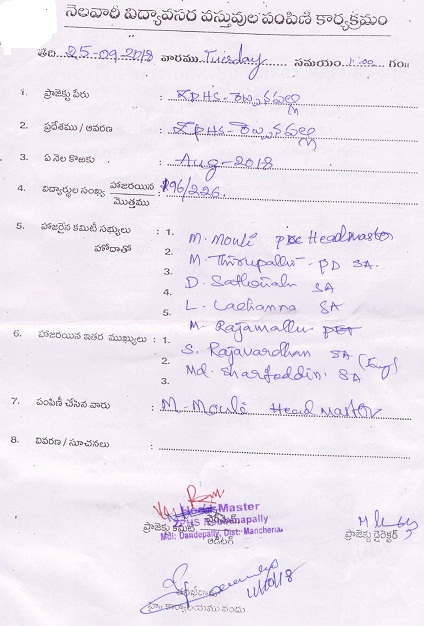 నెలవారీ విద్యావసర వస్తువుల పంపిణీ కార్యక్రమం
తేది 25-09-2018 వారము Tuesday సమయం 11:00 గం॥
1. ప్రాజెక్టు పేరు : ZPHS-రెబ్బనపల్లి
2. ప్రదేశము / ఆవరణ : ZPHS-రెబ్బనపల్లి
3. ఏ నెల కొఱకు : Aug-2018
4. విద్యార్థుల సంఖ్య హాజరయిన 196/226.
మొత్తము
5. హాజరైన కమిటీ సభ్యులు : 1. M. Mouli Headmaster
హోదాతో 2. M. Thirupallu - PD SA.
3. D. Sathaiah SA
4. L. Lachanna SA
5. M. Rajamallu
6. హాజరయిన ఇతర ముఖ్యులు : 1. S. Rajavardhan SA (Eng)
2. Md. Sharfoddin. SA
3.
7. పంపిణీ చేసిన వారు : M. Mouli Head Master
8. వివరణ / సూచనలు :
Head Master
ప్రాజెక్టు కమిటీ
Mdl: Dandepally, Dist: Mancherial
ఆడిటర్
ప్రాజెక్టు డైరెక్టర్